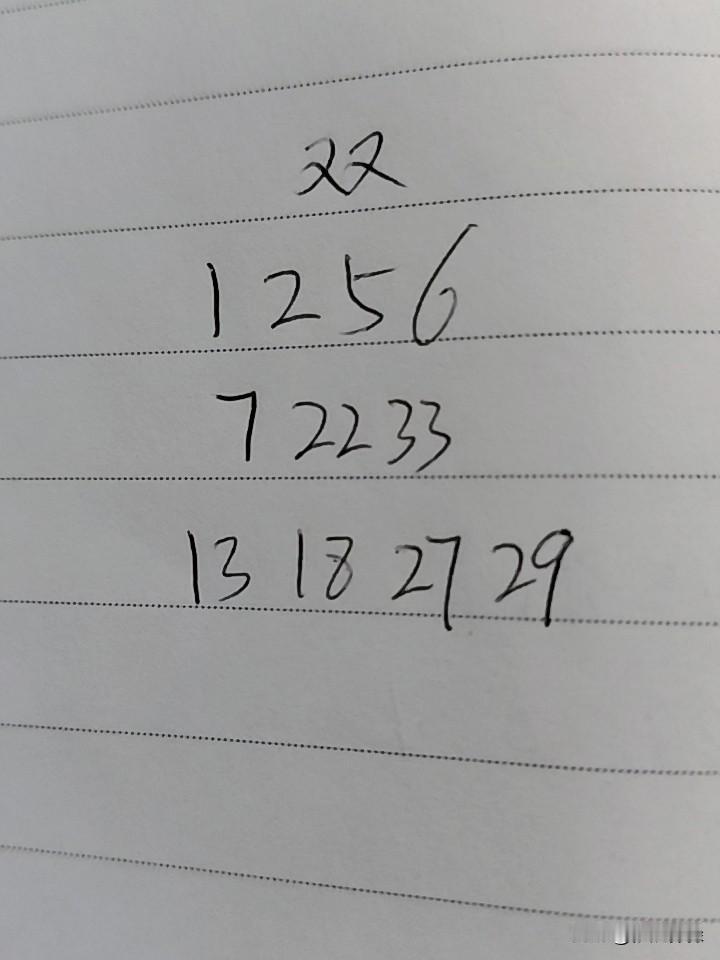 双
1 2 5 6
7 22 33
13 18 27 29